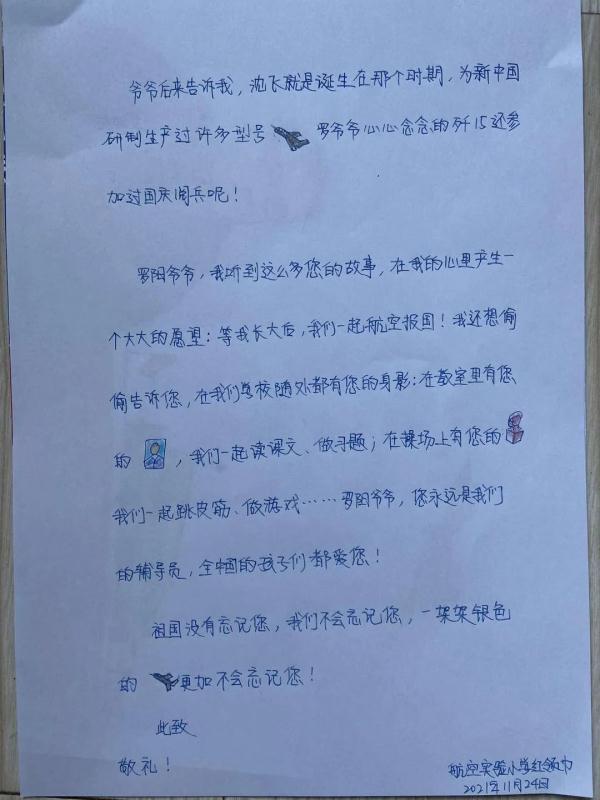 爷爷后来告诉我，沈飞就是诞生在那个时期，为新中国
研制生产过许多型号 罗爷爷心心念念的歼15还参
加过国庆阅兵呢！
罗阳爷爷，我听到这么多您的故事，在我的心里产生一
个大大的愿望：等我长大后，我们一起航空报国！我还想偷
偷告诉您，在我们学校随处都有您的身影：在教室里有您
的 ，我们一起读课文、做习题；在操场上有您的
我们一起跳皮筋、做游戏……罗阳爷爷，您永远是我们
的辅导员，全中国的孩子们都爱您！
祖国没有忘记您，我们不会忘记您，一架架银色
的 更加不会忘记您！
此致
敬礼！
航空实验小学红领巾
2021年11月24日